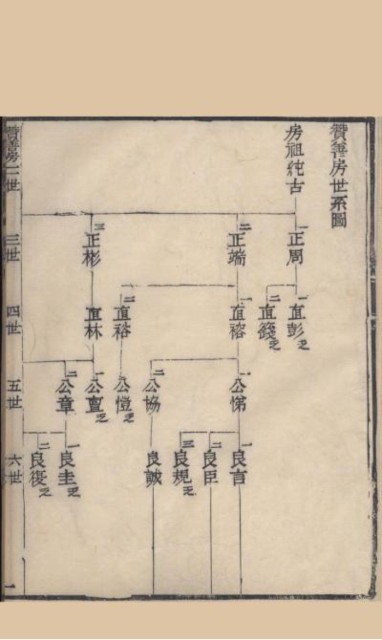 贊善房世系圖
房祖純古
贊善房二世
三世
四世
五世
六世
一正周
二正端
三正彬
一直彭之
二直籛之
一直褣
二直裕
直林
一公悌
二公協
公愷之
一公亶之
二公章
一良言
二良臣
三良規之
良誠
一良圭之
二良復之
一